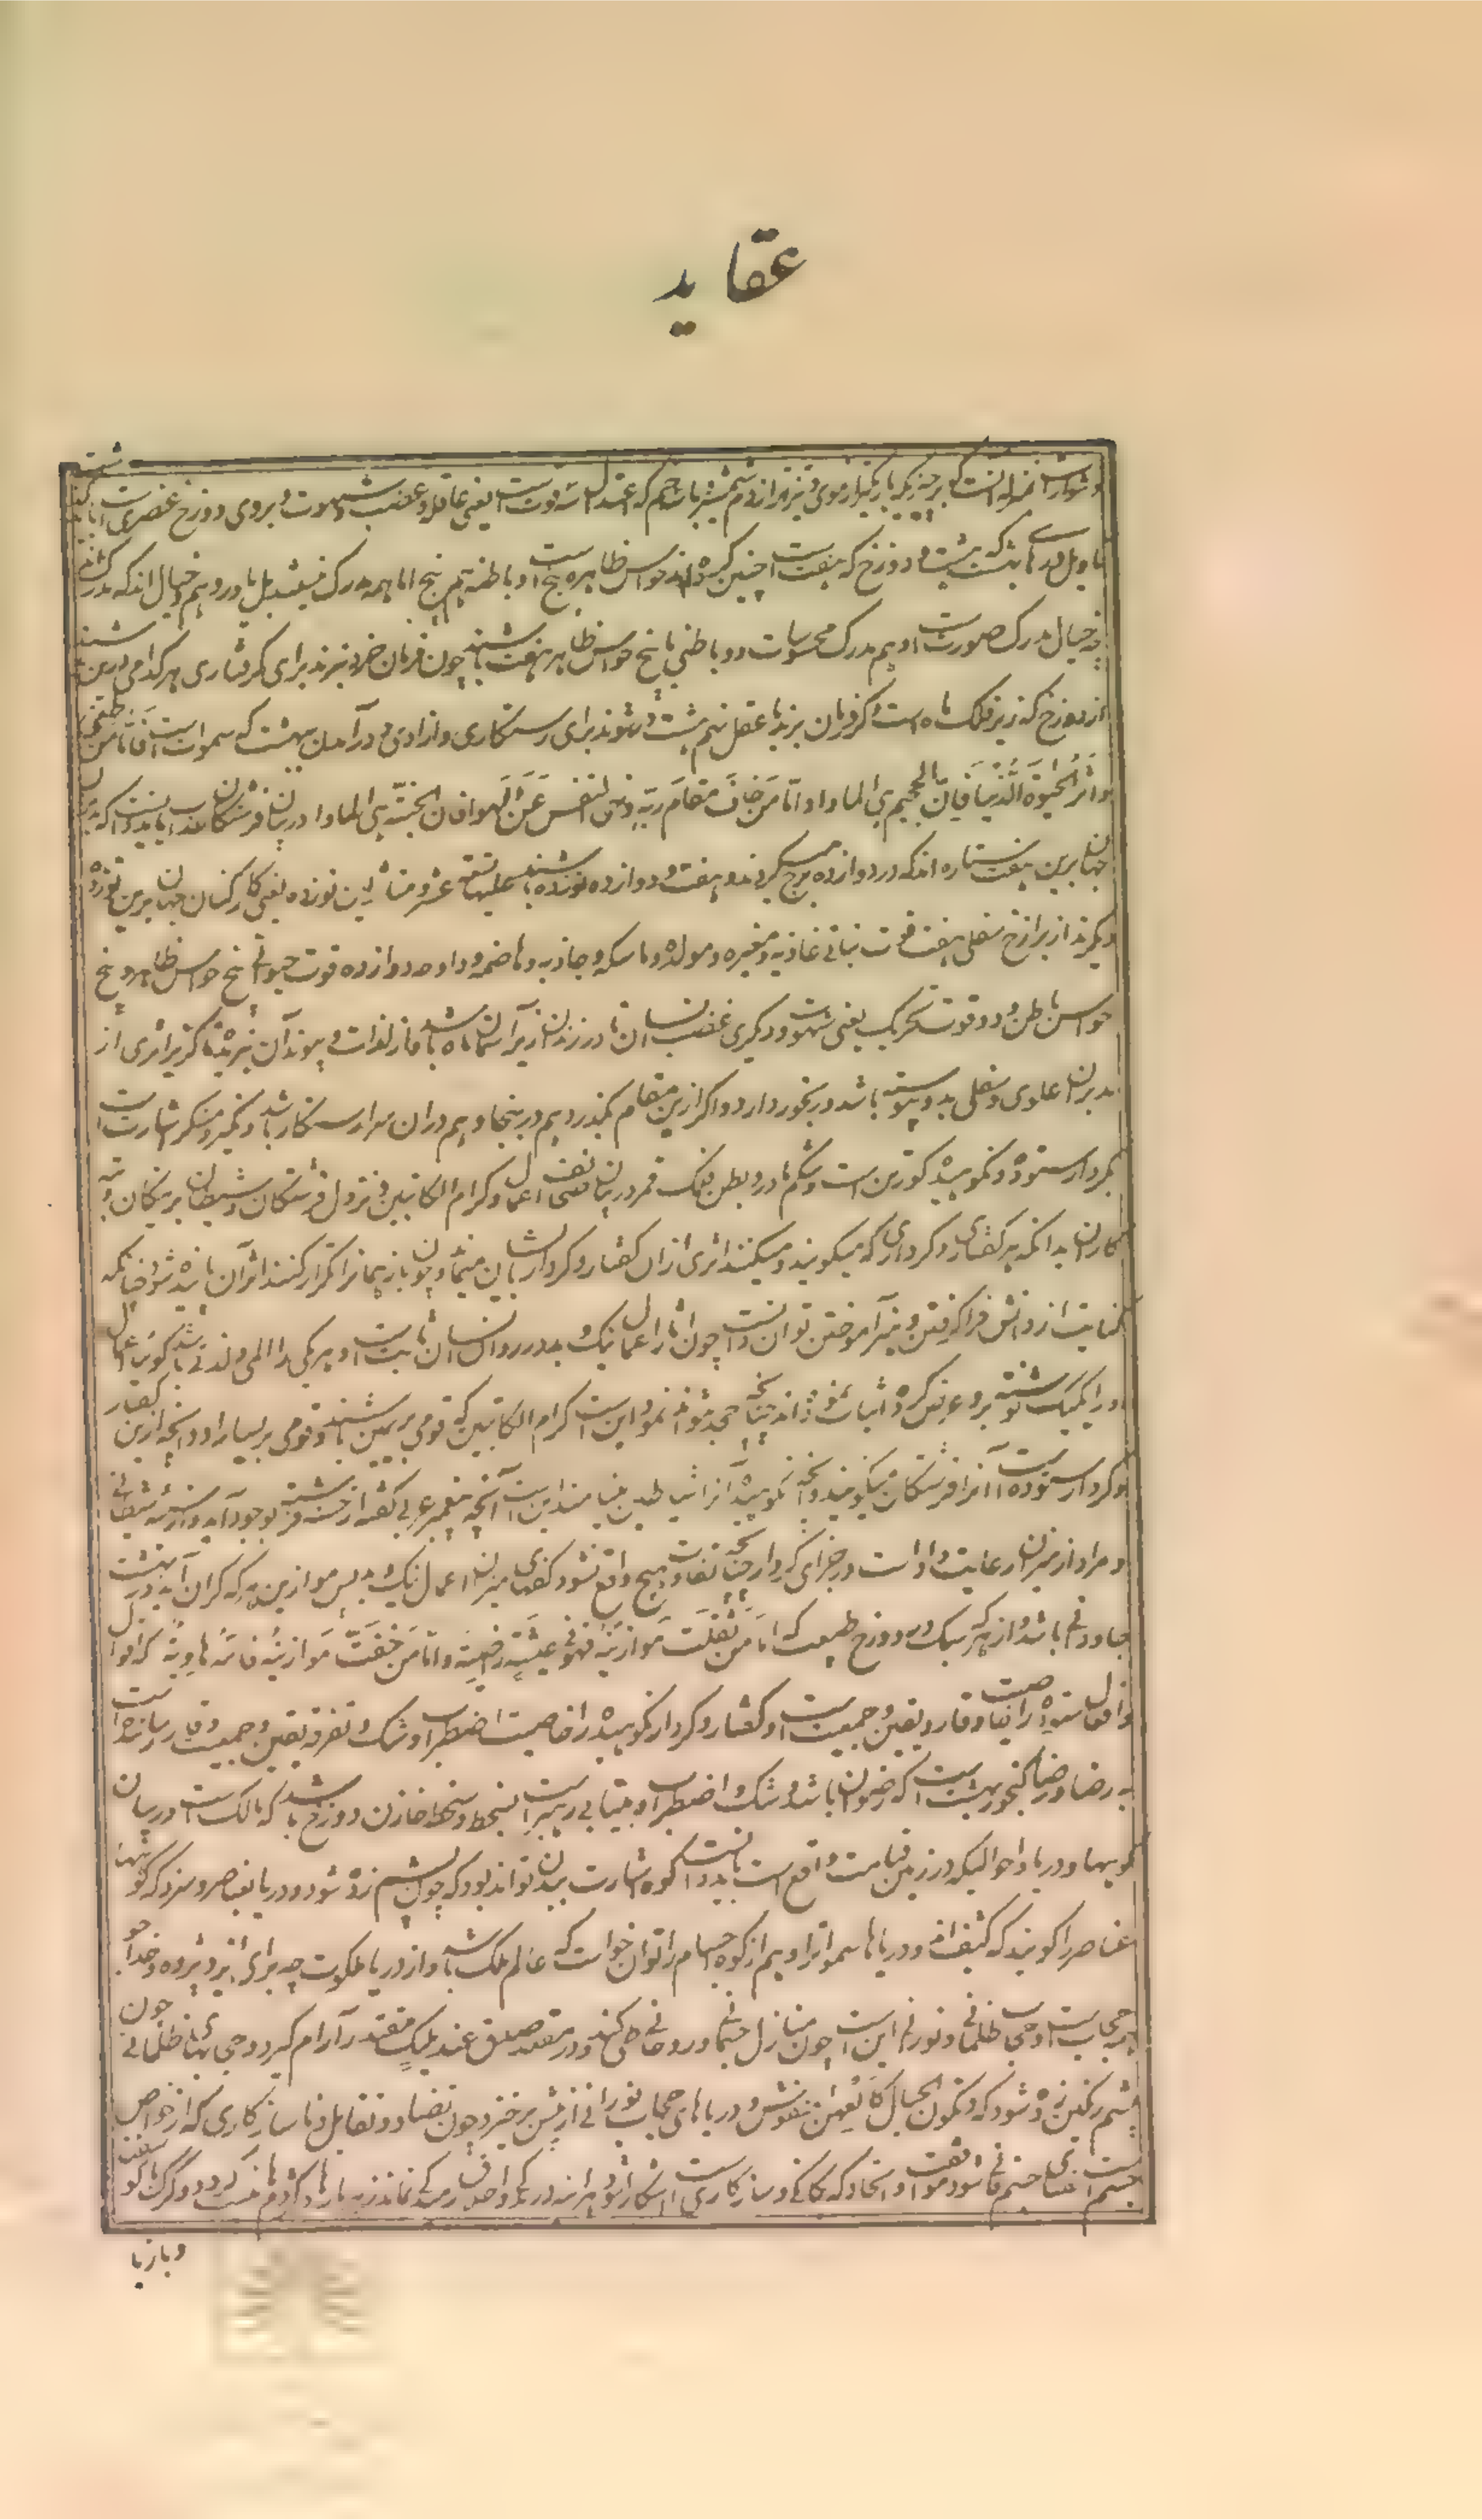 عقاید
باریکتر از موی و تیزتر از دم شمشیر باشد چه که اعتدال یعنی عاقل و غضب شهوت بروی دوزخ عنصری است
تاویل درهای هشت بهشت و دوزخ که هفت است چنین کرده اند حواس ظاهره پنج است و باطنه هم پنج اما همه مدرک نیستند بل دو وهم و خیال اند که مدرک
چه خیال مدرک صورت است و وهم مدرک محسوسات دو باطنی با پنج حواس ظاهر هفت باشند چون فرمان خرد نبرند برای گرفتاری هر کدامی دریست
از دوزخ که زیر فلک ماه است و گر فرمان برند با عقل نهم هشت در شوند برای رستگاری و آزادی و در آمدن بهشت که سموات است فاما من طغی
و آثر الحیوة الدنیا فان الجحیم هی الماوا و اما من خاف مقام ربه و نهی النفس عن الهوا فان الجنة هی الماوا در بیان فرشتگان عذاب باید دانست که مدبران
جهان برین هفت ستاره اند که در دوازده برج میگردند و هفت و دوازده نوزده باشند علیها تسعة عشر و مثال این نوزده یعنی کارکنان جهان برین نوزده
دیگرند از برازخ سفلی هفت قوت نباتی غاذیه و مغیره و مولده و ماسکه و جاذبه و هاضمه و دافعه دوازده قوت حیوانی پنج حواس ظاهر و پنج
حواس باطن و دو قوت تحریک یعنی شهوت و دیگری غضب انسان تا در زندان زیر آسمان ماه باشد از لذات و پیوند آن نبریده ناگزیر اثری از
مدبران علوی و سفلی بدو پیوسته باشد و رنجور دارد و اگر ازین مقام بگذرد هم درینجا و هم دران سرا رستگار باشد و نکیر و منکر اشارت است
بکردار ستوده و نکوهیده گور تن است و شکم مادر و بطن فلک قمر در بیان صحف اعمال و کرام الکاتبین و نزول فرشتگان و شیطان بر نیکان و تبه
کاران بدانکه هر گفتاری و کرداری که میگویند و میکنند اثری ازان گفتار و کردار بایشان میماند و چون باز همانرا تکرار کنند اثر آن پاینده شود چنانکه
کنایت از دانش فرا گرفتن و نیز آموختن توان دانست چون آثار اعمال نیک و بد در روان انسان ثابت است و هر یکی را المی و لذتی باشد گویی اعمال
او را یکیک نوشته برو عرض کرده اثبات نموده اند چنانچه نتواند نمود این است کرام الکاتبین که قومی بر یمین باشند و قومی بر یسار و آنچه ازین گفتار
و کردار ستوده است آنرا فرشتگان میگویند و آنچه نکوهیده آنرا شیاطین مینامند این است آنچه پیغمبر عربی گفته از حسنه فرشته بوجود آید و از سیئه شیطانی
و مراد از میزان رعایت و داد است در جزای کردار چنانچه تفاوت هیچ واقع نشود کفه‌های میزان اعمال نیک و بد پس موازین هر که گران آید در بهشت
جاودانی باشد و از هر که سبک در دوزخ طبیعت که اما من ثقلت موازینه فهو فی عیشة راضیة و اما من خفت موازینه فامه هاویة کردار
و اقوال ستوده را خاصیت وقار و یقین و جمعیت است و گفتار و کردار نکوهیده را خاصیت اضطراب و شک و تفرقه یقین و جمعیت و وقار رساننده است
به رضا و رضا گنجور بهشت است که رضوان باشد و شک و اضطراب و بیتابی رهبر است بسخط و سخط خازن دوزخ باشد که مالک است در بیان
کوهها و دریا و احوالیکه در زمین قیامت واقع است باید دانست کوه اشارت ببدن تواند بود که چون پشم زده شود و دریا بعناصر و سزد که کوهها
عناصر را گویند که کثیف اند و دریاها سموات را و هم از کوه اجسام را توان خواست که عالم ملک باشد و از دریا ملکوت چه برای ایزد پژوه و خداجو
هر حجاب است و حجب ظلمانی و نورانی این است چون منازل جسمانی و روحانی طی کند و در مقعد صدق عند ملیک مقتدر آرام گیرد و حجابهای ظلمانی چون
پشم رنگین زده شود که و تکون الجبال کالعهن المنفوش و دریاهای حجاب نورانی از پیش برخیزد و چون تضاد و تقابل و ناسازگاری که از خواص
جسم است یعنی جسم فانی شود موافقت و اتحاد که یگانگی و سازگاری است آشکارا شود هر آینه درندگی و رمندگی نماند زهر مار و کژدم هست گردد و گرگ با گوسفند
و باز با